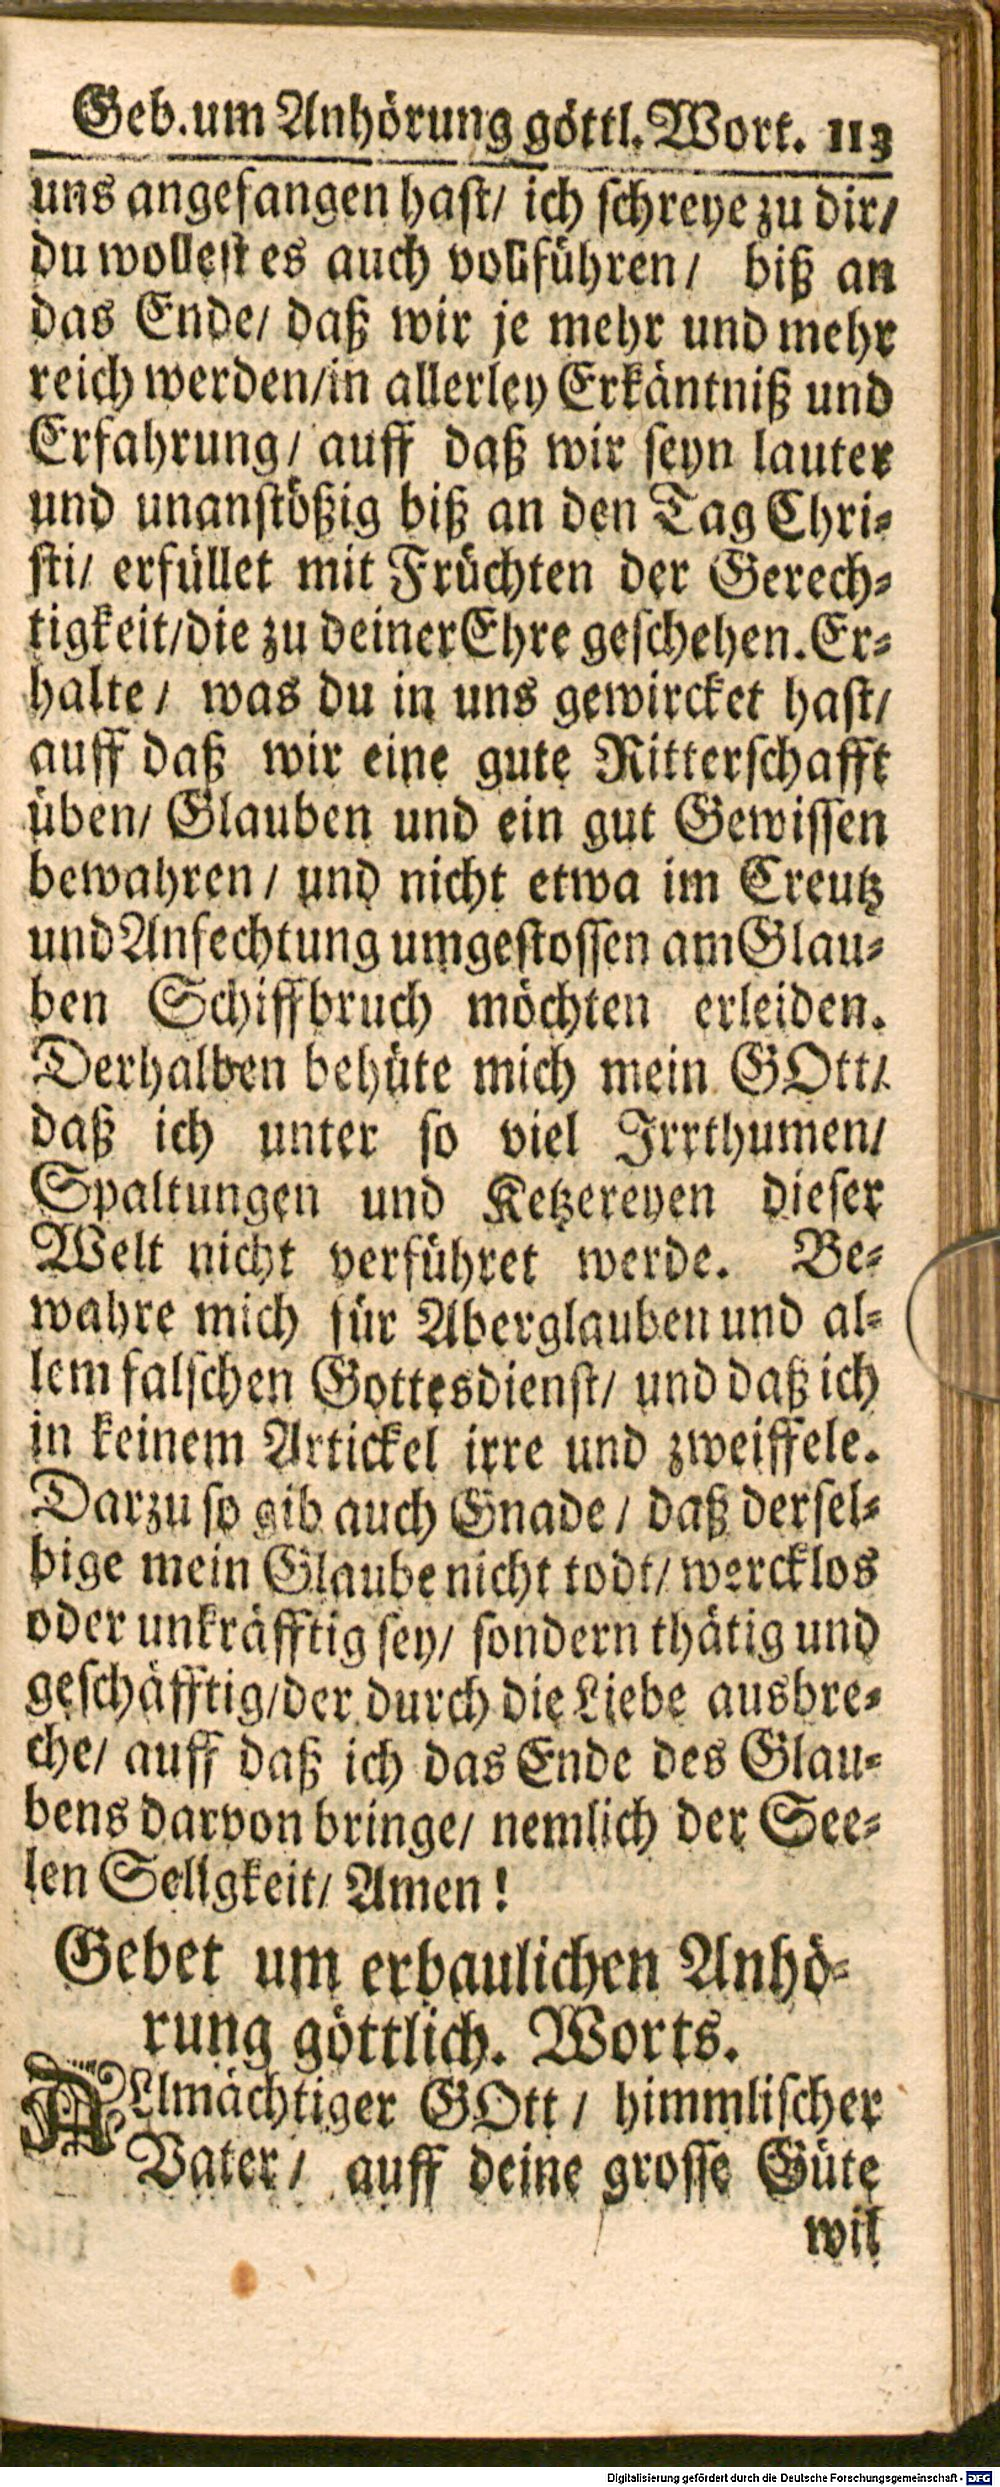 Geb. um Anhörung göttl. Wort. 113
uns angefangen hast/ ich schreye zu dir/
du wollest es auch vollführen/ biß an
das Ende/ daß wir je mehr und mehr
reich werden/in allerley Erkäntniß und
Erfahrung/ auff daß wir seyn lauter
und unanstößig biß an den Tag Chri-
sti/ erfüllet mit Früchten der Gerech-
tigkeit/die zu deiner Ehre geschehen. Er-
halte/ was du in uns gewircket hast/
auff daß wir eine gute Ritterschafft
üben/ Glauben und ein gut Gewissen
bewahren/ und nicht etwa im Creutz
und Anfechtung umgestossen am Glau-
ben Schiffbruch möchten erleiden.
Derhalben behüte mich mein GOtt/
daß ich unter so viel Irrthumen/
Spaltungen und Ketzereyen dieser
Welt nicht verführet werde. Be-
wahre mich für Aberglauben und al-
lem falschen Gottesdienst/ und daß ich
in keinem Artickel irre und zweiffele.
Darzu so gib auch Gnade/ daß dersel-
bige mein Glaube nicht todt/ wercklos
oder unkräfftig sey/ sondern thätig und
geschäfftig/der durch die Liebe ausbre-
che/ auff daß ich das Ende des Glau-
bens darvon bringe/ nemlich der See-
len Seligkeit/ Amen!
Gebet um erbaulichen Anhö-
rung göttlich. Worts.
ALlmächtiger GOtt/ himmlischer
Vater/ auff deine grosse Güte
wil
Digitalisierung gefördert durch die Deutsche Forschungsgemeinschaft - DFG